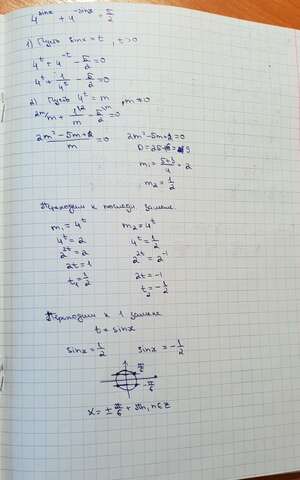 4^sinx + 4^-sinx = 5/2
1) Пусть sinx = t, t>0
4^t + 4^-t - 5/2 = 0
4^t + 1/4^t - 5/2 = 0
2) Пусть 4^t = m, m≠0
2m/ m + 1/m - 5/2 = 0
2m² - 5m + 2 / m = 0
2m² - 5m + 2 = 0
D = 25 - 16 = 9
m₁ = 5+3/4 = 2
m₂ = 1/2
Переходим к замене
m₁ = 4^t
4^t = 2
2^2t = 2
2t = 1
t₁ = 1/2
m₂ = 4^t
4^t = 1/2
2^2t = 2^-1
2t = -1
t₂ = -1/2
Переходим к 1 замене
t = sinx
sinx = 1/2
sinx = -1/2
π/6
-π/6
x = ± π/6 + πn, n∈Z